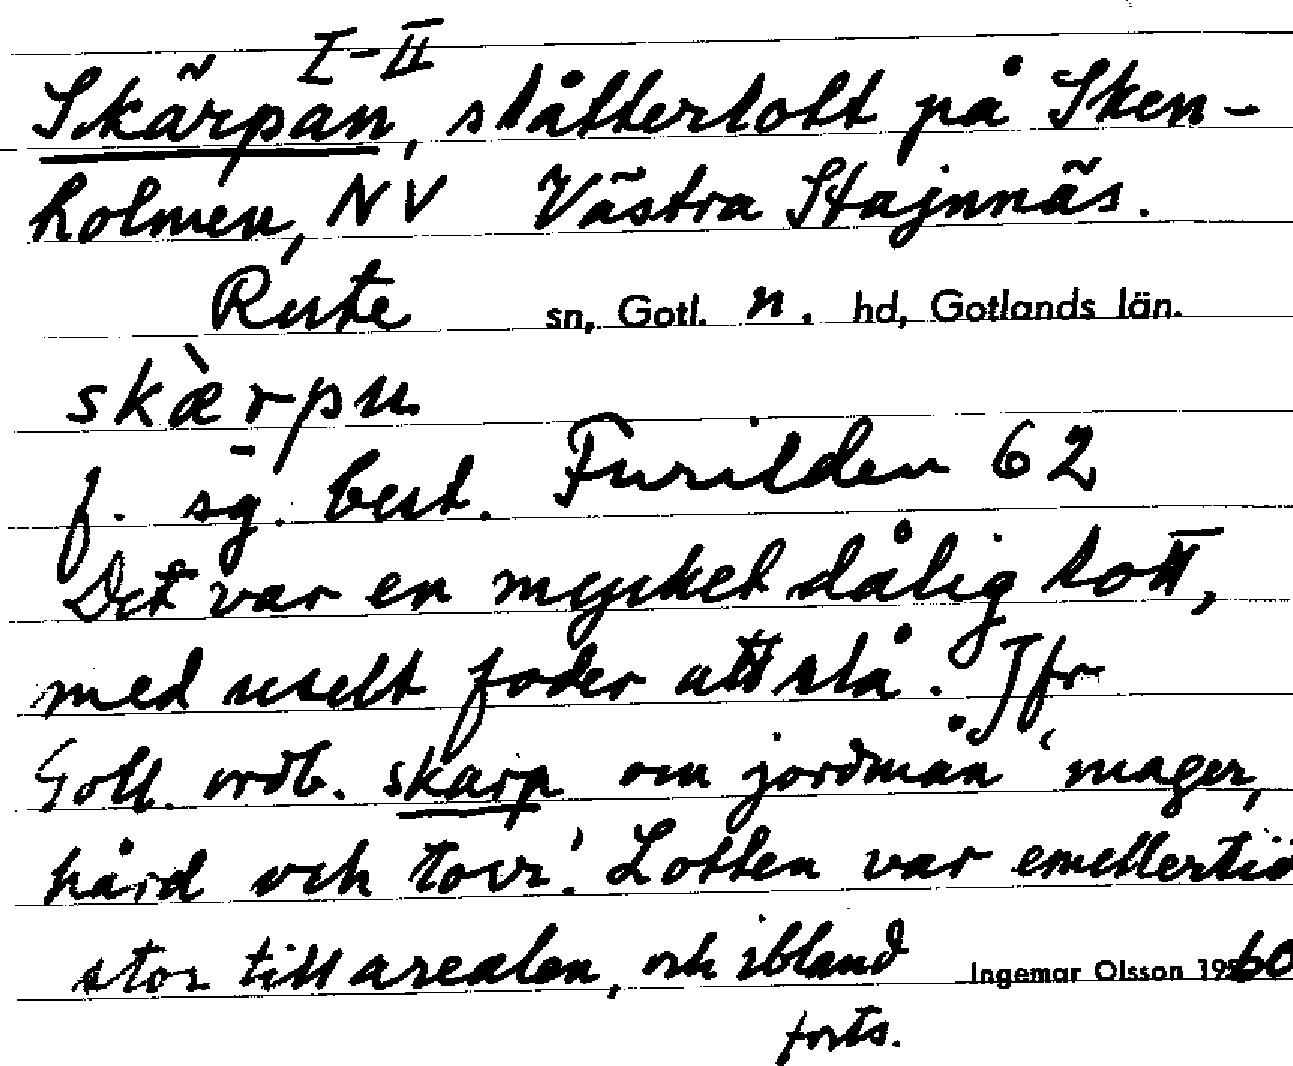 I-II
Skärpan, slåtterlott på Sken-
holmen, NV Västra Stajnnäs.
Rute sn, Gotl. n. hd, Gotlands län.
skæ̀rpu
f. sg. best. Furilden 62
Det var en mycket dålig lott,
med uselt foder att slå. Jfr
Gotl. ordb. skarp om jordmån 'mager,
hård och torr'. Lotten var emellertid
stor till arealen, och ibland
Ingemar Olsson 1960
forts.